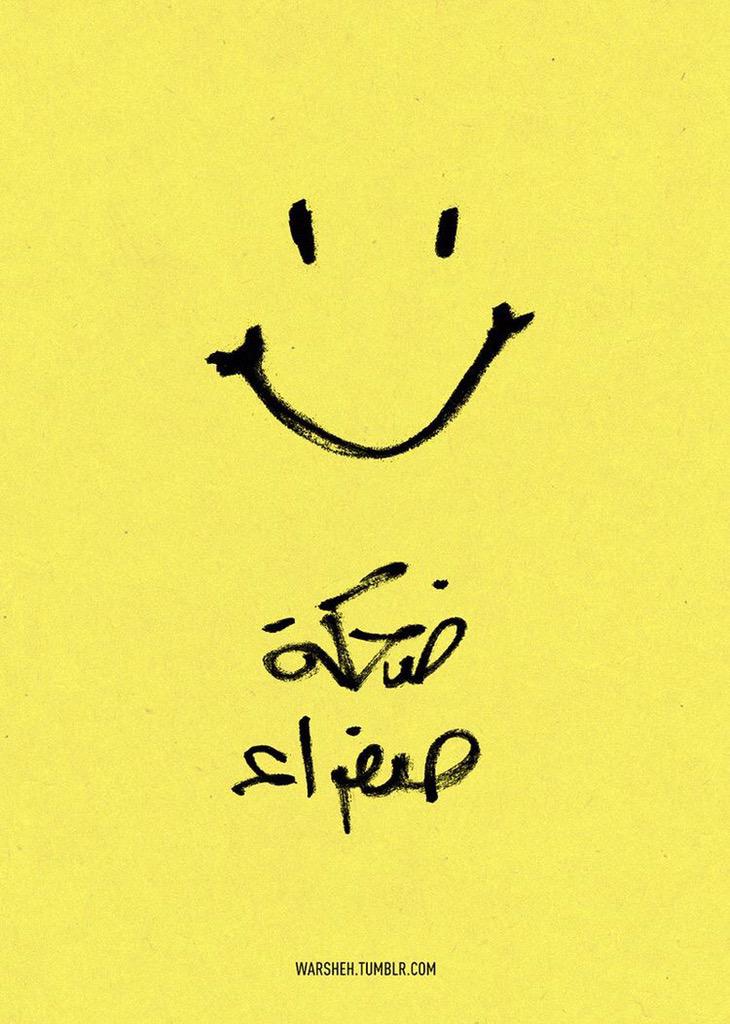 ضحكة
صفراء
WARSHEH.TUMBLR.COM